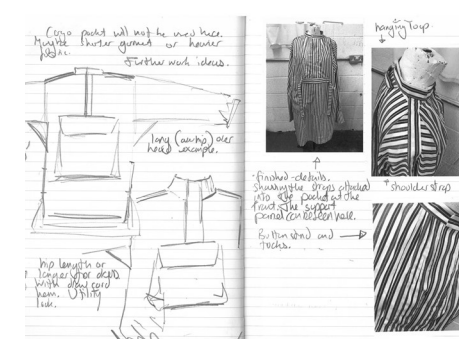 pocket will not be used here.
Maybe shorter garment or heavier
Further work ideas.
long over
head example.
hip length or
longer for depth
with draw cord
hem. Utility
look.
hanging loop.
finished details.
showing the straps attached
into the pocket at the
front. The support
panel can be seen here.
shoulder strap
Button stand and
tucks.